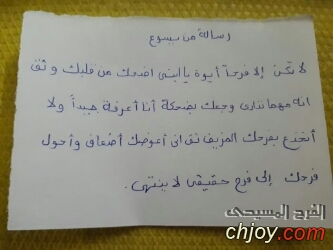 رسالة من يسوع
لا تكن إلا فرحاً أيوة يا ابنى اضحك من قلبك وثق
انه مهما تدارى وجعك بضحكة أنا أعرفة جيداً ولا
أنخدع بفرحك المزيف ثق انى أعوضك أضعاف وأحول
فرحك إلى فرح حقيقى لا ينتهى.
الفرح المسيحى
chjoy.com